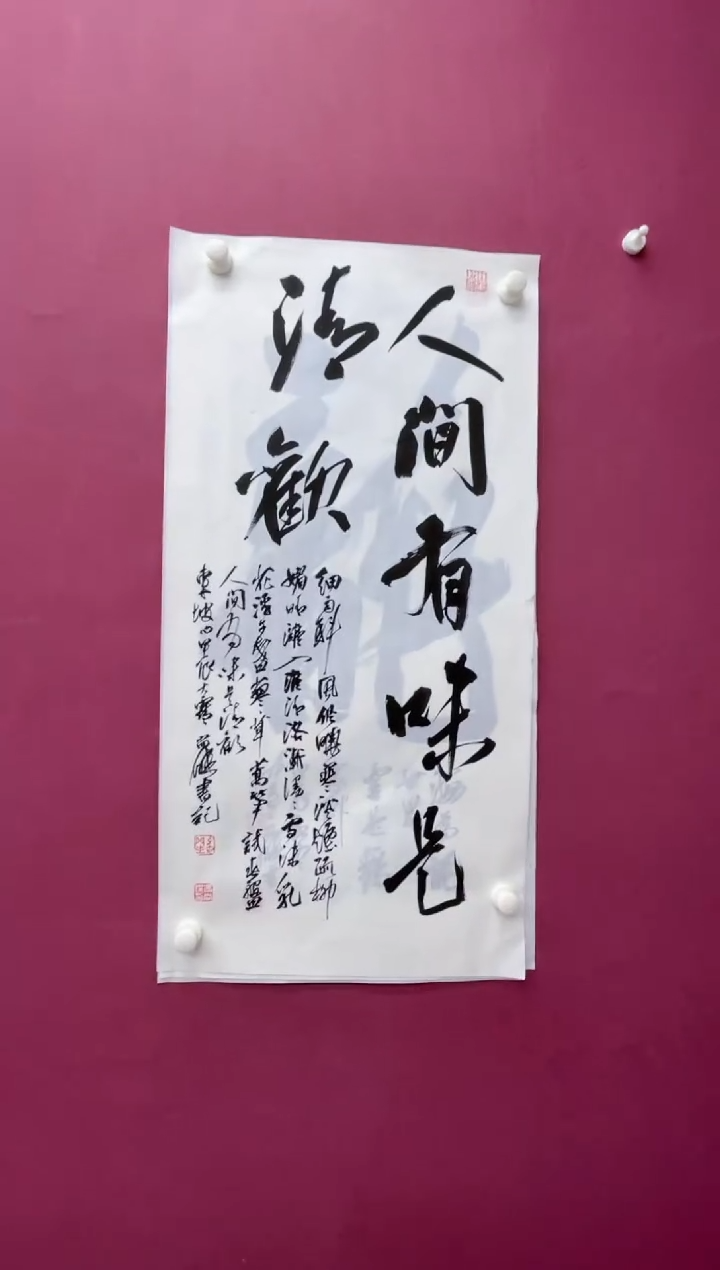 人間有味是
清歡
細雨斜風作曉寒淡煙疏柳
媚晴灘入淮清洛漸漫〻雪沫乳
花浮午盞蓼茸蒿筍試春盤
人間有味是清歡
東坡大寒書記